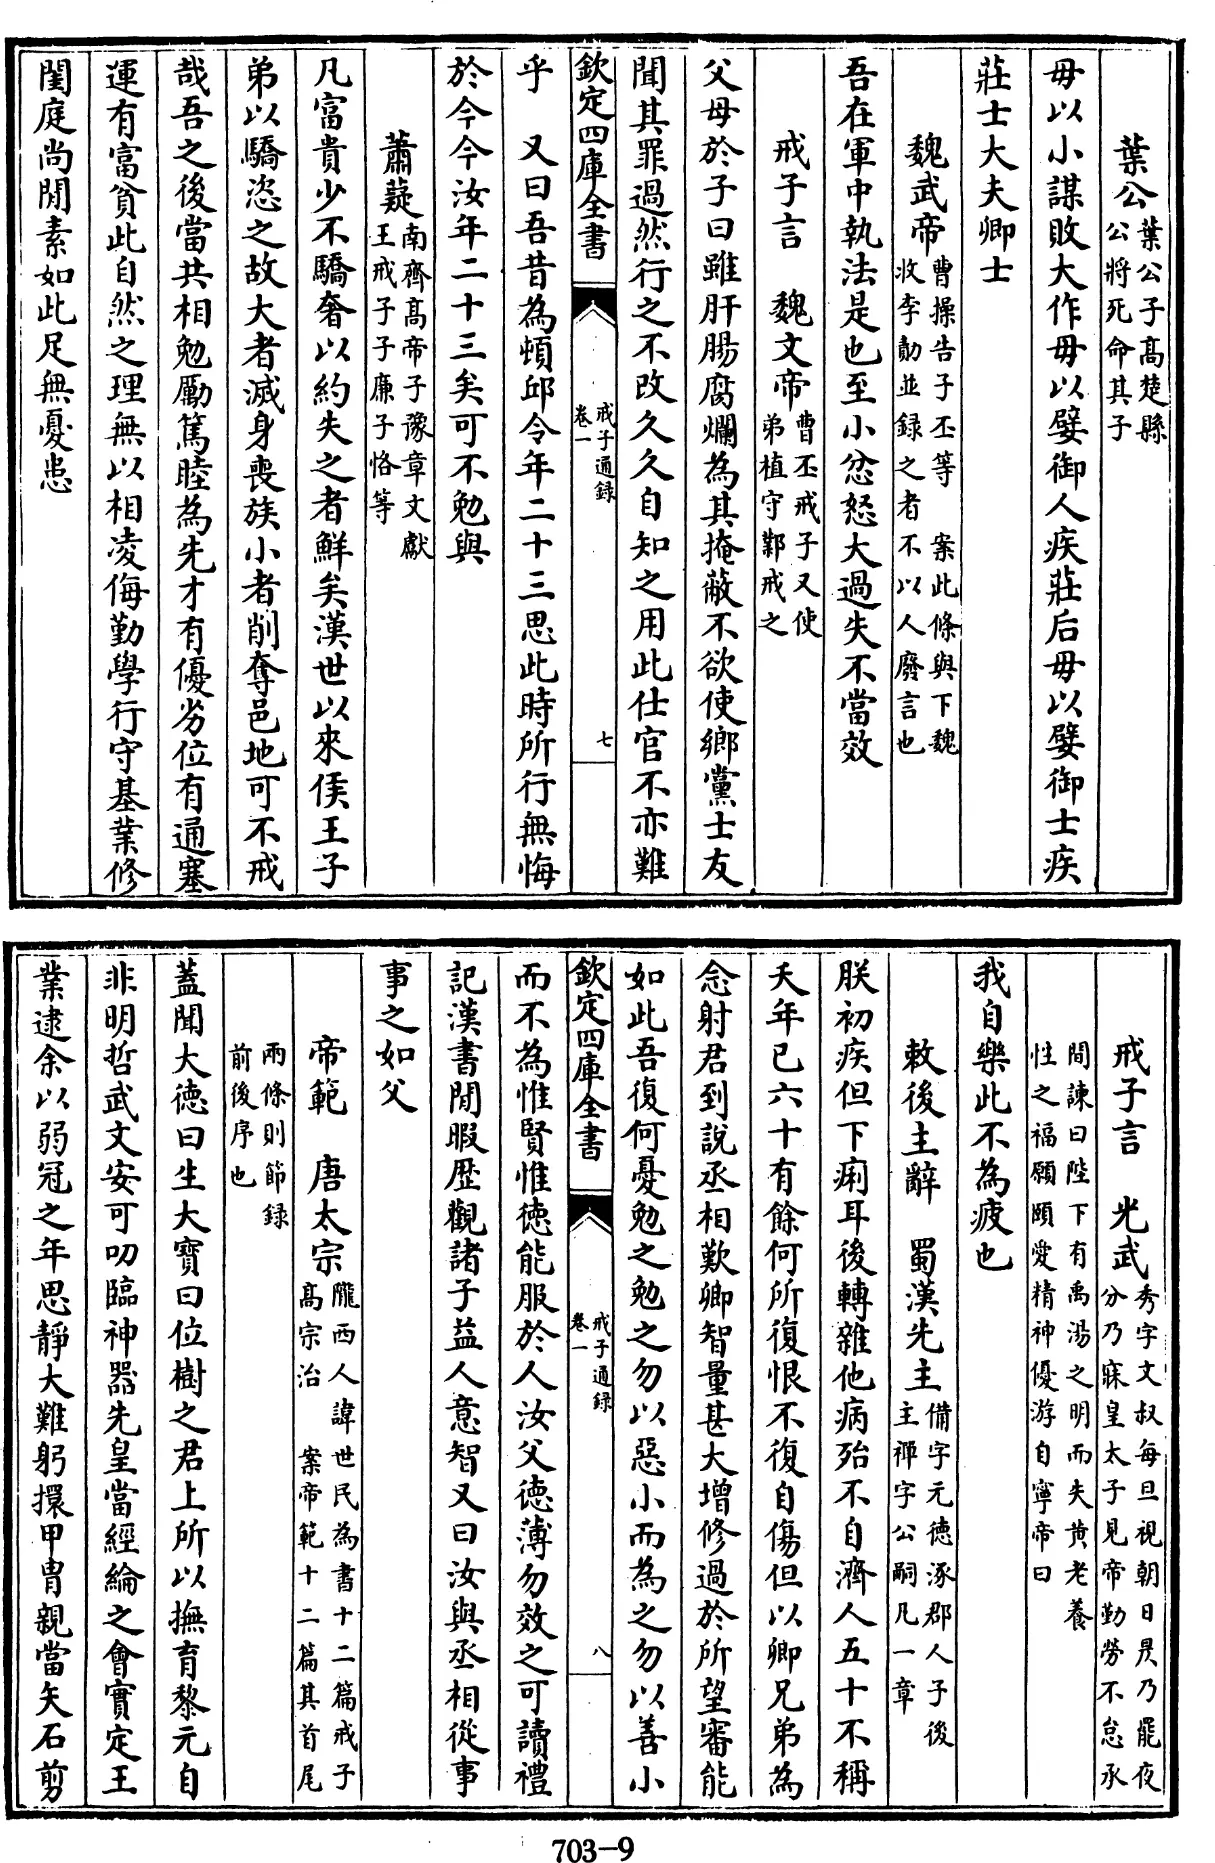 葉公葉公子高楚縣公將死命其子
毋以小謀敗大作毋以嬖御人疾莊后毋以嬖御士疾
莊士大夫卿士
魏武帝曹操告子丕等　案此條與下魏收李勣並録之者不以人廢言也
吾在軍中執法是也至小忿怒大過失不當效
戒子言　魏文帝曹丕戒子又使弟植守鄴戒之
父母於子曰雖肝腸腐爛為其掩蔽不欲使鄉黨士友
聞其罪過然行之不改久久自知之用此仕官不亦難
欽定四庫全書　戒子通録卷一　七
乎　又曰吾昔為頓邱令年二十三思此時所行無悔
於今今汝年二十三矣可不勉與
蕭嶷南齊高帝子豫章文獻王戒子子廉子恪等
凡富貴少不驕奢以約失之者鮮矣漢世以來侯王子
弟以驕恣之故大者滅身喪族小者削奪邑地可不戒
哉吾之後當共相勉勵篤睦為先才有優劣位有通塞
運有富貧此自然之理無以相凌侮勤學行守基業修
閨庭尚閒素如此足無憂患
戒子言　光武秀字文叔每旦視朝日昃乃罷夜分乃寐皇太子見帝勤勞不怠承
間諫曰陛下有禹湯之明而失黄老養性之福願頤愛精神優游自寧帝曰
我自樂此不為疲也
敕後主辭　蜀漢先主備字元徳涿郡人子後主禪字公嗣凡一章
朕初疾但下痢耳後轉雜他病殆不自濟人五十不稱
夭年已六十有餘何所復恨不復自傷但以卿兄弟為
念射君到說丞相歎卿智量甚大增修過於所望審能
如此吾復何憂勉之勉之勿以惡小而為之勿以善小
欽定四庫全書　戒子通録卷一　八
而不為惟賢惟徳能服於人汝父徳薄勿效之可讀禮
記漢書閒暇歴觀諸子益人意智又曰汝與丞相從事
事之如父
帝範　唐太宗隴西人諱世民為書十二篇戒子高宗治　案帝範十二篇其首尾
兩條則節録前後序也
蓋聞大徳曰生大寳曰位樹之君上所以撫育黎元自
非明哲武文安可叨臨神器先皇當經綸之會實定王
業逮余以弱冠之年思靜大難躬擐甲胄親當矢石剪
703-9